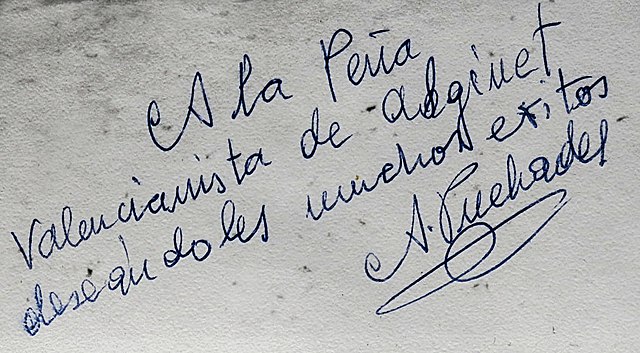 A la Peña
Valencianista de algінet
deseándoles muchos exitos
A. Puchades